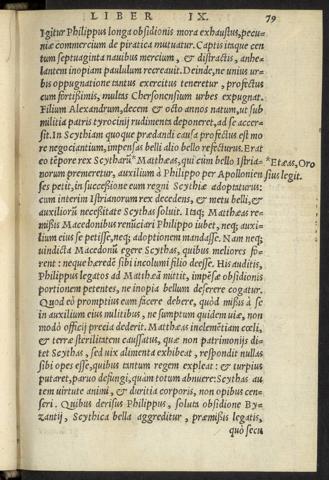 LIBER IX. 79
Igitur Philippus longa obsidionis mora exhaustus, pecu-
niæ commercium de piratica mutuatur. Captis itaque cen
tum septuaginta nauibus mercium, & distractis, anhe-
lantem inopiam paululum recreauit. Deinde, ne unius ur-
bis oppugnatione tantus exercitus teneretur, profectus
cum fortißimis, multas Chersonensium urbes expugnat.
Filium Alexandrum, decem & octo annos natum, ut sub
militia patris tyrocinij rudimenta deponeret, ad se accer-
sit. In Scythiam quoque prædandi causa profectus est mo
re negociantium, impensas belli alio bello refecturus. Erat
eo tēpore rex Scytharū* Matthæas, qui cùm bello Istria- *Etæas, Oro
norum premeretur, auxilium à Philippo per Apollonien sius legit.
ses petit, in successione eum regni Scythiæ adoptaturus:
cum interim Istrianorum rex decedens, & metu belli, &
auxiliorū neceßitate Scythas soluit. Itaq; Matthæas re-
mißis Macedonibus renūciari Philippo iubet, neq; auxi-
lium eius se petisse, neq; adoptionem mandasse. Nam neq;
uindicta Macedonū egere Scythas, quibus meliores fo-
rent: neque hæredē sibi incolumi filio deesse. His auditis,
Philippus legatos ad Matthæā mittit, impēsæ obsidionis
portionem petentes, ne inopia bellum deserere cogatur.
Quod eò promptius eum facere debere, quòd mißis à se
in auxilium eius militibus, ne sumptum quidem uiæ, non
modò officij precia dederit. Matthæas inclemētiam cœli,
& terræ sterilitatem caussatus, quæ non patrimonijs di-
tet Scythas, sed uix alimenta exhibeat, respondit nullas
sibi opes esse, quibus tantum regem expleat: & turpius
putaret, paruo defungi, quàm totum abnuere: Scythas au
tem uirtute animi, & duritia corporis, non opibus cen-
seri. Quibus derisus Philippus, soluta obsidione By-
zantij, Scythica bella aggreditur, præmißis legatis,
quò secu